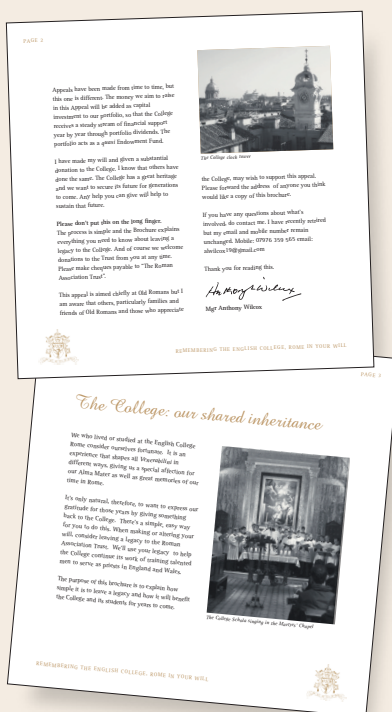 PAGE 2
Appeals have been made from time to time, but
this one is different. The money we aim to raise
in this Appeal will be added as capital
investment to our portfolio, so that the College
receives a steady stream of financial support
year by year through portfolio dividends. The
portfolio acts as a quasi Endowment Fund.
I have made my will and given a substantial
donation to the College. I know that others have
done the same. The College has a great heritage
and we want to secure its future for generations
to come. Any help you can give will help to
sustain that future.
Please don't put this on the long finger.
The process is simple and the Brochure explains
everything you need to know about leaving a
legacy to the College. And of course we welcome
donations to the Trust from you at any time.
Please make cheques payable to "The Roman
Association Trust".
This appeal is aimed chiefly at Old Romans but I
am aware that others, particularly families and
friends of Old Romans and those who appreciate
The College clock tower
the College, may wish to support this appeal.
Please forward the address of anyone you think
would like a copy of this brochure.
If you have any questions about what's
involved, do contact me. I have recently retired
but my email and mobile number remain
unchanged. Mobile: 07976 359 565 email:
alwilcox19@gmail.com
Thank you for reading this.
Anthony Wilcox
Mgr Anthony Wilcox
REMEMBERING THE ENGLISH COLLEGE, ROME IN YOUR WILL
PAGE 3
The College: our shared inheritance
We who lived or studied at the English College
Rome consider ourselves fortunate. It is an
experience that shapes all Venerabilini in
different ways, giving us a special affection for
our Alma Mater as well as great memories of our
time in Rome.
It's only natural, therefore, to want to express our
gratitude for those years by giving something
back to the College. There's a simple, easy way
for you to do this. When making or altering your
will, consider leaving a legacy to the Roman
Association Trust. We'll use your legacy to help
the College continue its work of training talented
men to serve as priests in England and Wales.
The purpose of this brochure is to explain how
simple it is to leave a legacy and how it will benefit
the College and its students for years to come.
The College Schola singing in the Martyrs' Chapel
REMEMBERING THE ENGLISH COLLEGE, ROME IN YOUR WILL